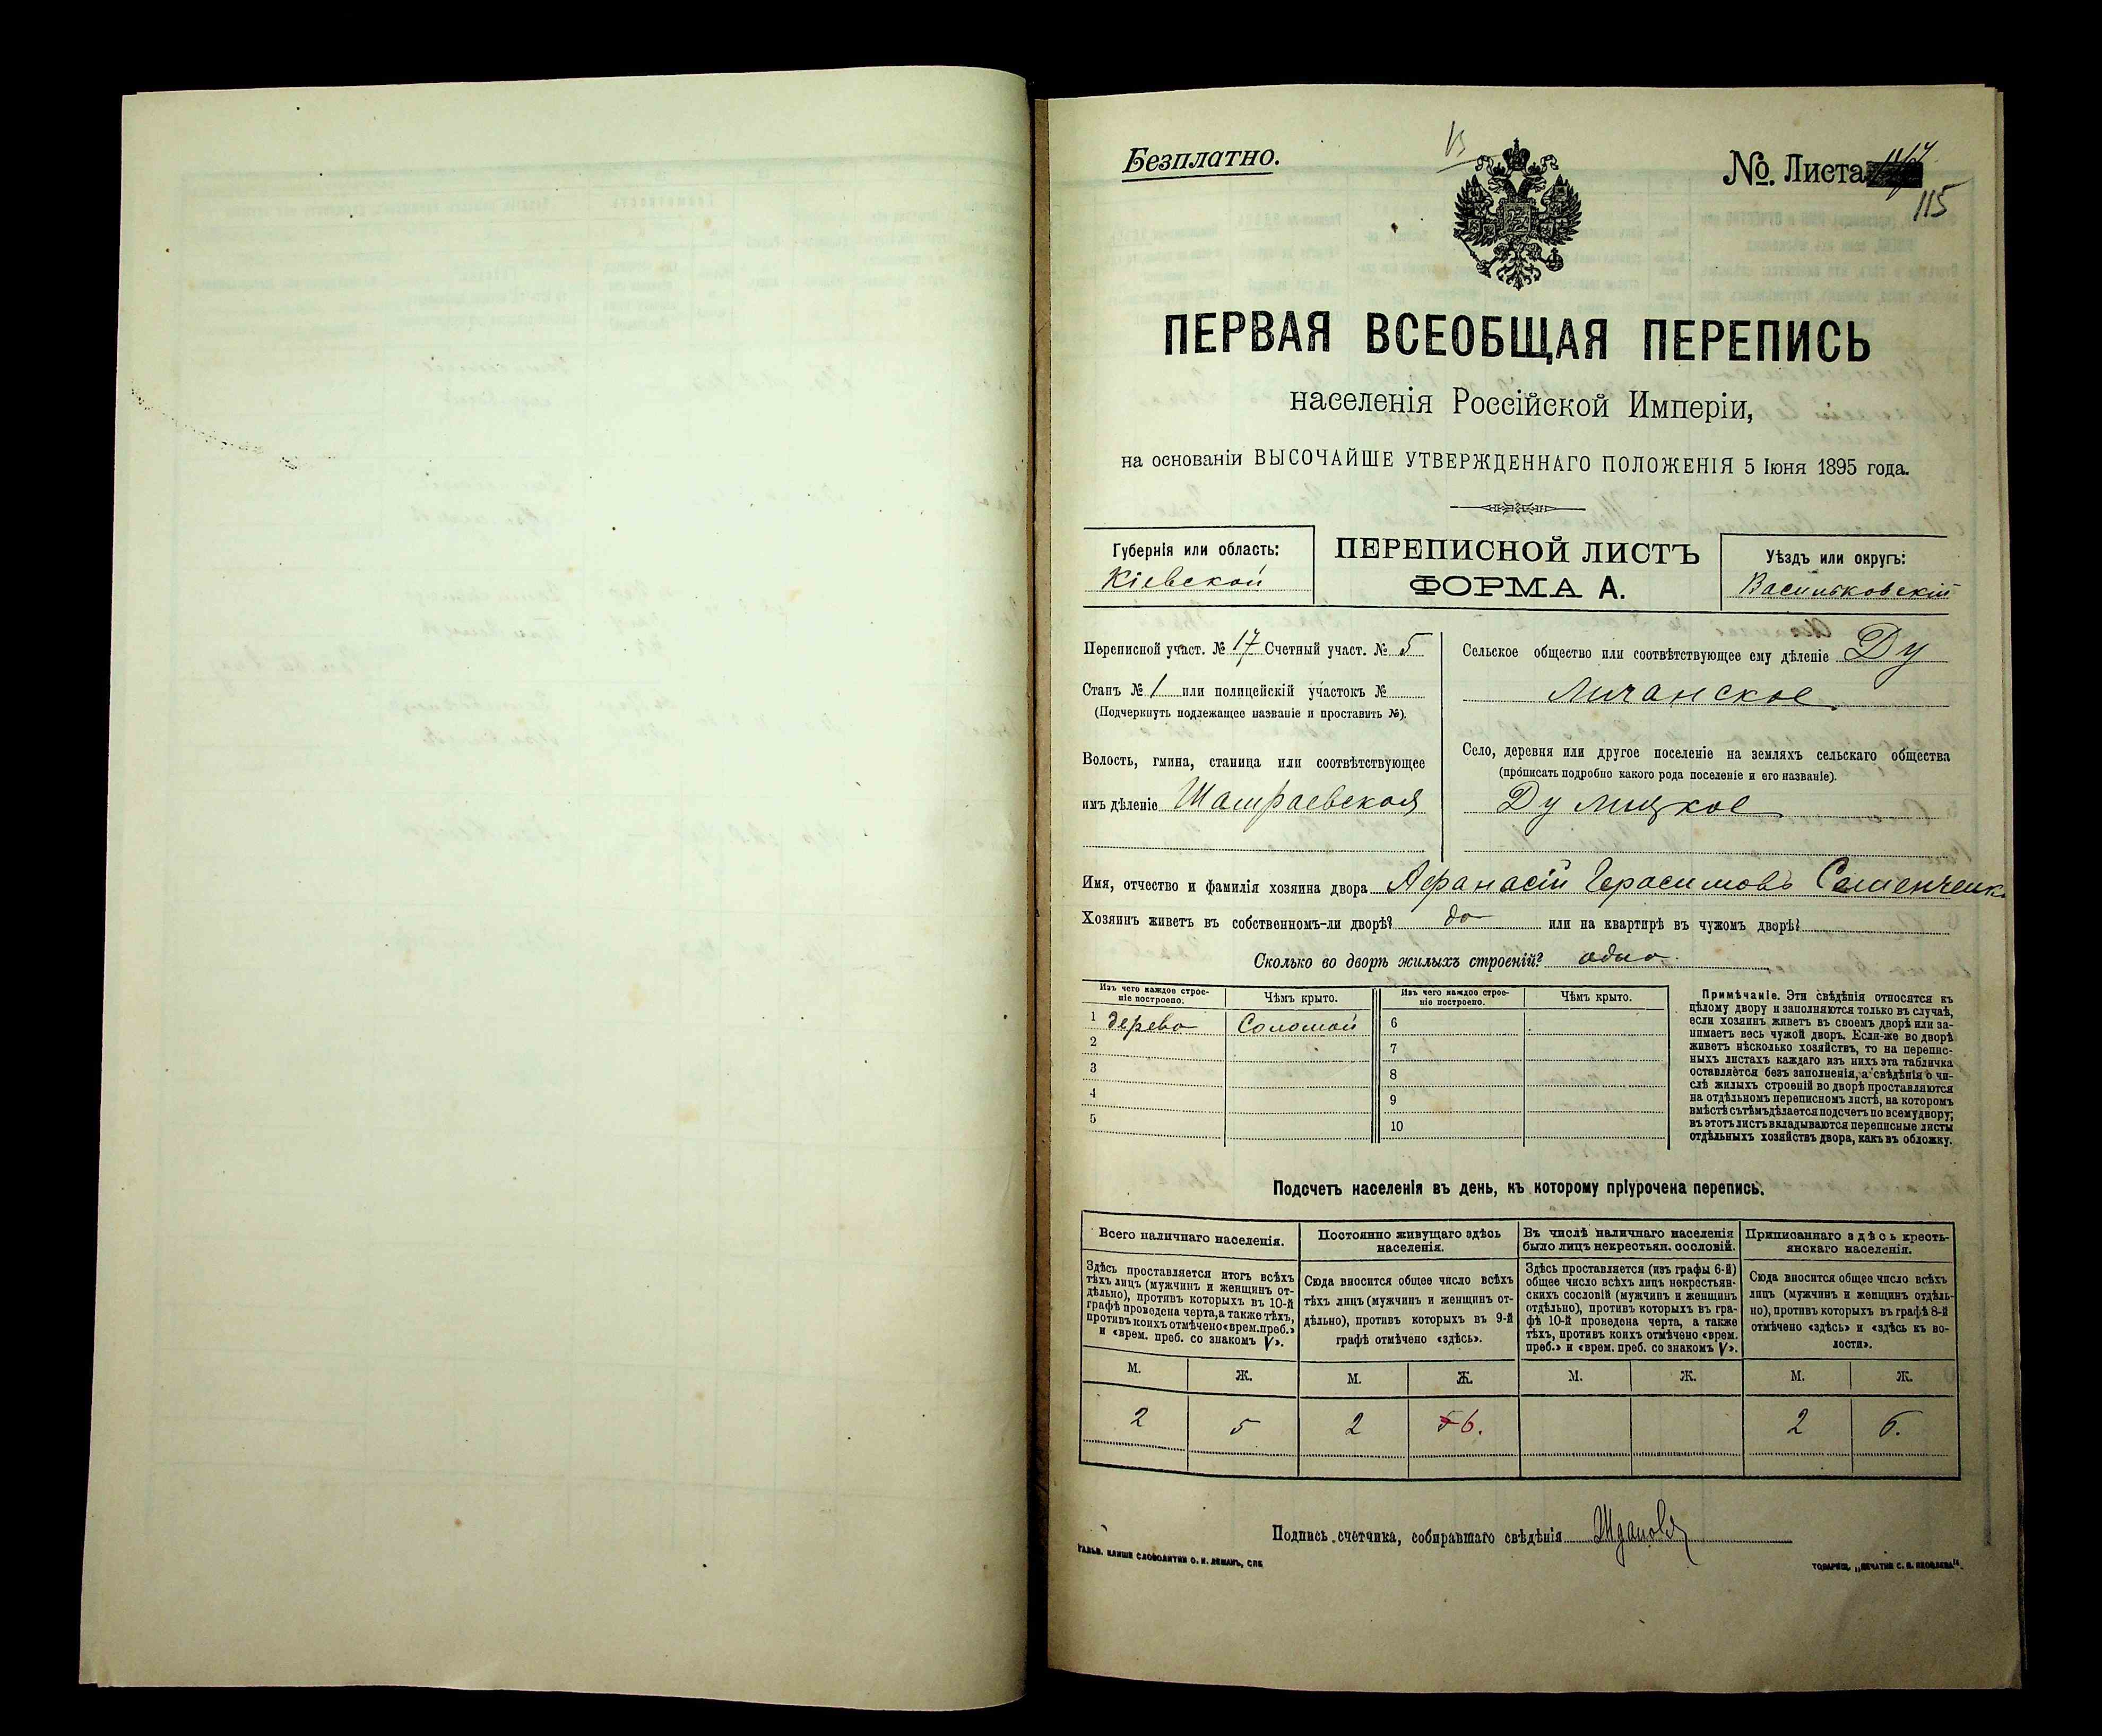 Безплатно.
№ Листа
115
ПЕРВАЯ ВСЕОБЩАЯ ПЕРЕПИСЬ
населенія Россійской Имперіи,
на основаніи ВЫСОЧАЙШЕ УТВЕРЖДЕННАГО ПОЛОЖЕНІЯ 5 Іюня 1895 года.
Губернія или область:
Кіевской
ПЕРЕПИСНОЙ ЛИСТЪ
ФОРМА А.
Уѣздъ или округъ:
Васильковскій
Переписной участ. № 17 Счетный участ. № 5
Станъ № 1 или полицейскій участокъ №
(Подчеркнуть подлежащее названіе и проставить №).
Волость, гмина, станица или соотвѣтствующее
имъ дѣленіе Шамраевская
Сельское общество или соотвѣтствующее ему дѣленіе Ду
личанское
Село, деревня или другое поселеніе на земляхъ сельскаго общества
(прописать подробно какого рода поселеніе и его названіе).
Дулицкое
Имя, отчество и фамилія хозяина двора Афанасій Герасимовъ Семенченко
Хозяинъ живетъ въ собственномъ-ли дворѣ? да или на квартирѣ въ чужомъ дворѣ?
Сколько во дворѣ жилыхъ строеній? одно.
Изъ чего каждое строе-
ніе построено.
Чѣмъ крыто.
Изъ чего каждое строе-
ніе построено.
Чѣмъ крыто.
1 дерево Соломой 6
2 7
3 8
4 9
5 10
Примѣчаніе. Эти свѣдѣнія относятся къ
цѣлому двору и заполняются только въ случаѣ,
если хозяинъ живетъ въ своемъ дворѣ или за-
нимаетъ весь чужой дворъ. Если-же во дворѣ
живетъ нѣсколько хозяйствъ, то на перепис-
ныхъ листахъ каждаго изъ нихъ эта табличка
оставляется безъ заполненія, а свѣдѣнія о чи-
слѣ жилыхъ строеній во дворѣ проставляются
на отдѣльномъ переписномъ листѣ, на которомъ
вмѣстѣ съ тѣмъ дѣлается подсчетъ по всему двору;
въ этотъ листъ вкладываются переписные листы
отдѣльныхъ хозяйствъ двора, какъ въ обложку.
Подсчетъ населенія въ день, къ которому пріурочена перепись.
Всего наличнаго населенія.
Здѣсь проставляется итогъ всѣхъ
тѣхъ лицъ (мужчинъ и женщинъ от-
дѣльно), противъ которыхъ въ 10-й
графѣ проведена черта, а также тѣхъ,
противъ коихъ отмѣчено «врем. преб.»
и «врем. преб. со знакомъ V».
Постоянно живущаго здѣсь
населенія.
Сюда вносится общее число всѣхъ
тѣхъ лицъ (мужчинъ и женщинъ от-
дѣльно), противъ которыхъ въ 9-й
графѣ отмѣчено «здѣсь».
Въ числѣ наличнаго населенія
было лицъ некрестьян. сословій.
Здѣсь проставляется (изъ графы 6-й)
общее число всѣхъ лицъ некрестьян-
скихъ сословій (мужчинъ и женщинъ
отдѣльно), противъ которыхъ въ гра-
фѣ 10-й проведена черта, а также
тѣхъ, противъ коихъ отмѣчено «врем.
преб.» и «врем. преб. со знакомъ V».
Приписаннаго здѣсь кресть-
янскаго населенія.
Сюда вносится общее число всѣхъ
лицъ (мужчинъ и женщинъ отдѣль-
но), противъ которыхъ въ графѣ 8-й
отмѣчено «здѣсь» и «здѣсь къ во-
лости».
М. Ж. М. Ж. М. Ж. М. Ж.
2 5 2 5 6. 2 6.
Подпись счетчика, собиравшаго свѣдѣнія Ждановъ
ГАЛЬВ. КЛИШЕ СЛОВОЛИТНИ О. И. ЛЕМАНЪ, СПБ
ТОВАРИЩ. „ПЕЧАТНЯ С. П. ЯКОВЛЕВА“.